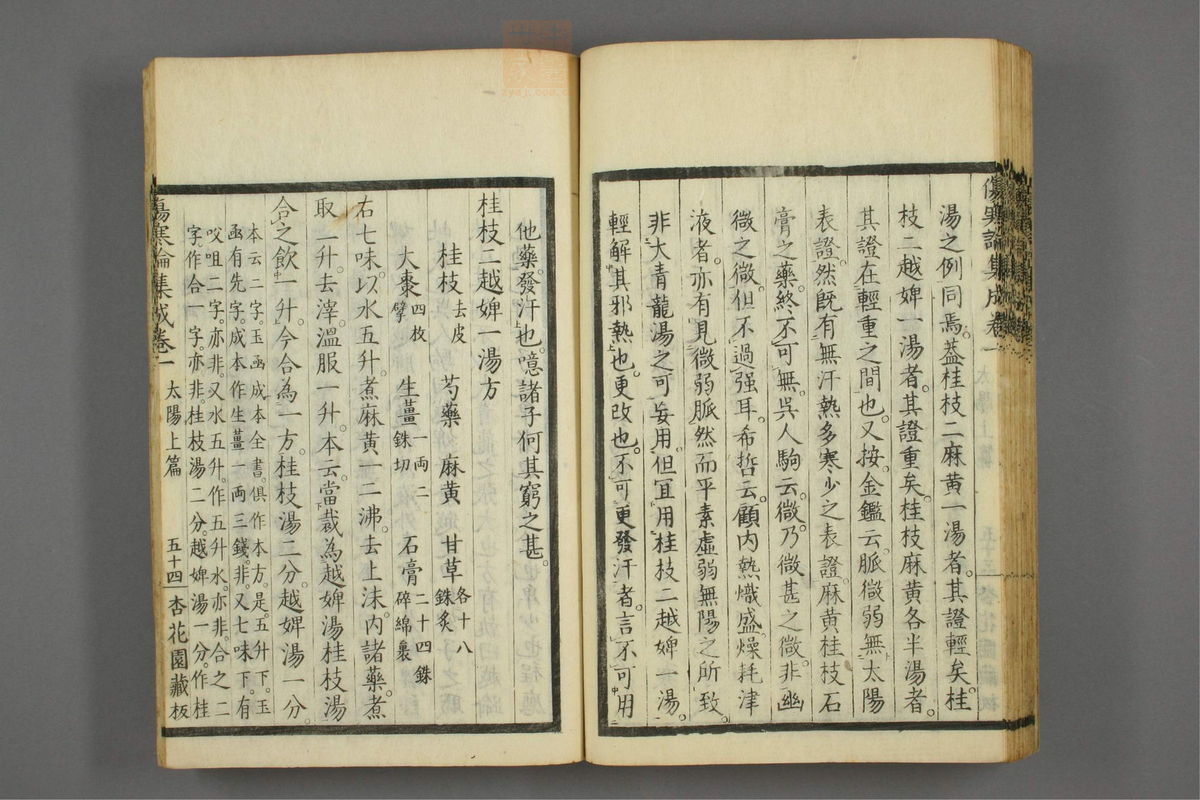 傷寒論集成卷一
湯之例同焉。蓋桂枝二麻黃一湯者。其證輕矣。桂
枝二越婢一湯者。其證重矣。桂枝麻黃各半湯者。
其證在輕重之間也。又按。金鑑云。脈微弱無太陽
表證。然既有無汗熱多寒少之表證。麻黃桂枝石
膏之藥。終不可無。吳人駒云。微。乃微甚之微。非幽
微之微。但不過强耳。希哲云。顧內熱熾盛。燥耗津
液者。亦有見微弱脈。然而平素虛弱無陽之所致。
非大青龍湯之可妄用。但宜用桂枝二越婢一湯。
輕解其邪熱也。更改也。不可更發汗者。言不可用
他藥。發汗也。噫諸子何其窮之甚。
桂枝二越婢一湯方
桂枝去皮 芍藥 麻黃 甘草各十八銖炙
大棗四枚擘 生薑一兩二銖切 石膏二十四銖碎綿裹
右七味。以水五升。煮麻黃一二沸。去上沫。內諸藥。煮
取一升。去滓。溫服一升。本云。當裁為越婢湯桂枝湯
合之飲一升。今合為一方。桂枝湯二分。越婢湯一分。
本云二字。玉函成本全書。俱作本方。是。五升下。玉
函有先字。成本作生薑一兩三錢。非。又七味下。有
㕮咀二字。亦非。又水五升。作五升水。亦非。合之二
字。作合一字。亦非。桂枝湯二分。越婢湯一分。作桂
傷寒論集成卷一 太陽上篇 五十四 杏花園藏板